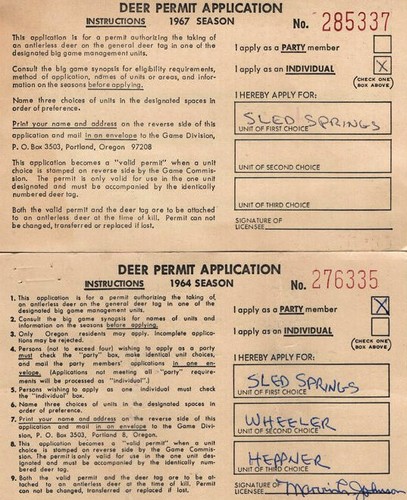 DEER PERMIT APPLICATION
INSTRUCTIONS 1967 SEASON
No. 285337
This application is for a permit authorizing the taking of
an antlerless deer on the general deer tag in one of the
designated big game management units.
Consult the big game synopsis for eligibility requirements,
method of application, names of units or areas, and infor-
mation on the seasons before applying.
Name three choices of units in the designated spaces in
order of preference.
Print your name and address on the reverse side of this
application and mail in an envelope to the Game Division,
P. O. Box 3503, Portland, Oregon 97208
This application becomes a "valid permit" when a unit
choice is stamped on reverse side by the Game Commis-
sion. The permit is only valid for use in the one unit
designated and must be accompanied by the identically
numbered deer tag.
Both the valid permit and the deer tag are to be attached
to an antlerless deer at the time of kill. Permit can not
be changed, transferred or replaced if lost.
I apply as a PARTY member
I apply as an INDIVIDUAL X
(CHECK ONE
BOX ABOVE)
I HEREBY APPLY FOR:
SLED SPRINGS
UNIT OF FIRST CHOICE
UNIT OF SECOND CHOICE
UNIT OF THIRD CHOICE
SIGNATURE OF
LICENSEE
DEER PERMIT APPLICATION
INSTRUCTIONS 1964 SEASON
No. 276335
1. This application is for a permit authorizing the taking of,
an antlerless deer on the general deer tag in one of the
designated big game management units.
2. Consult the big game synopsis for names of units and
information on the seasons before applying.
3. Only Oregon residents may apply. Incomplete applica-
tions may be rejected.
4. Persons (not to exceed four) wishing to apply as a party
must check the "party" box, make identical unit choices,
and mail the party members' applications in one en-
velope. (Applications not meeting all "party" require-
ments will be processed as "individual".)
5. Persons wishing to apply as an individual must check
the "individual" box.
6. Name three choices of units in the designated spaces in
order of preference.
7. Print your name and address on the reverse side of this
application and mail in an envelope to the Game Divi-
sion, P. O. Box 3503, Portland 8, Oregon.
8. This application becomes a "valid permit" when a unit
choice is stamped on reverse side by the Game Commis-
sion. The permit is only valid for use in the one unit des-
ignated and must be accompanied by the identically num-
bered deer tag.
9. Both the valid permit and the deer tag are to be attached
to an antlerless deer at time of kill. Permit can not be
changed, transferred or replaced if lost.
I apply as a PARTY member X
I apply as an INDIVIDUAL
(CHECK ONE
BOX ABOVE)
I HEREBY APPLY FOR:
SLED SPRINGS
UNIT OF FIRST CHOICE
WHEELER
UNIT OF SECOND CHOICE
HEPPNER
UNIT OF THIRD CHOICE
SIGNATURE OF
LICENSEE Marvin L Johnson